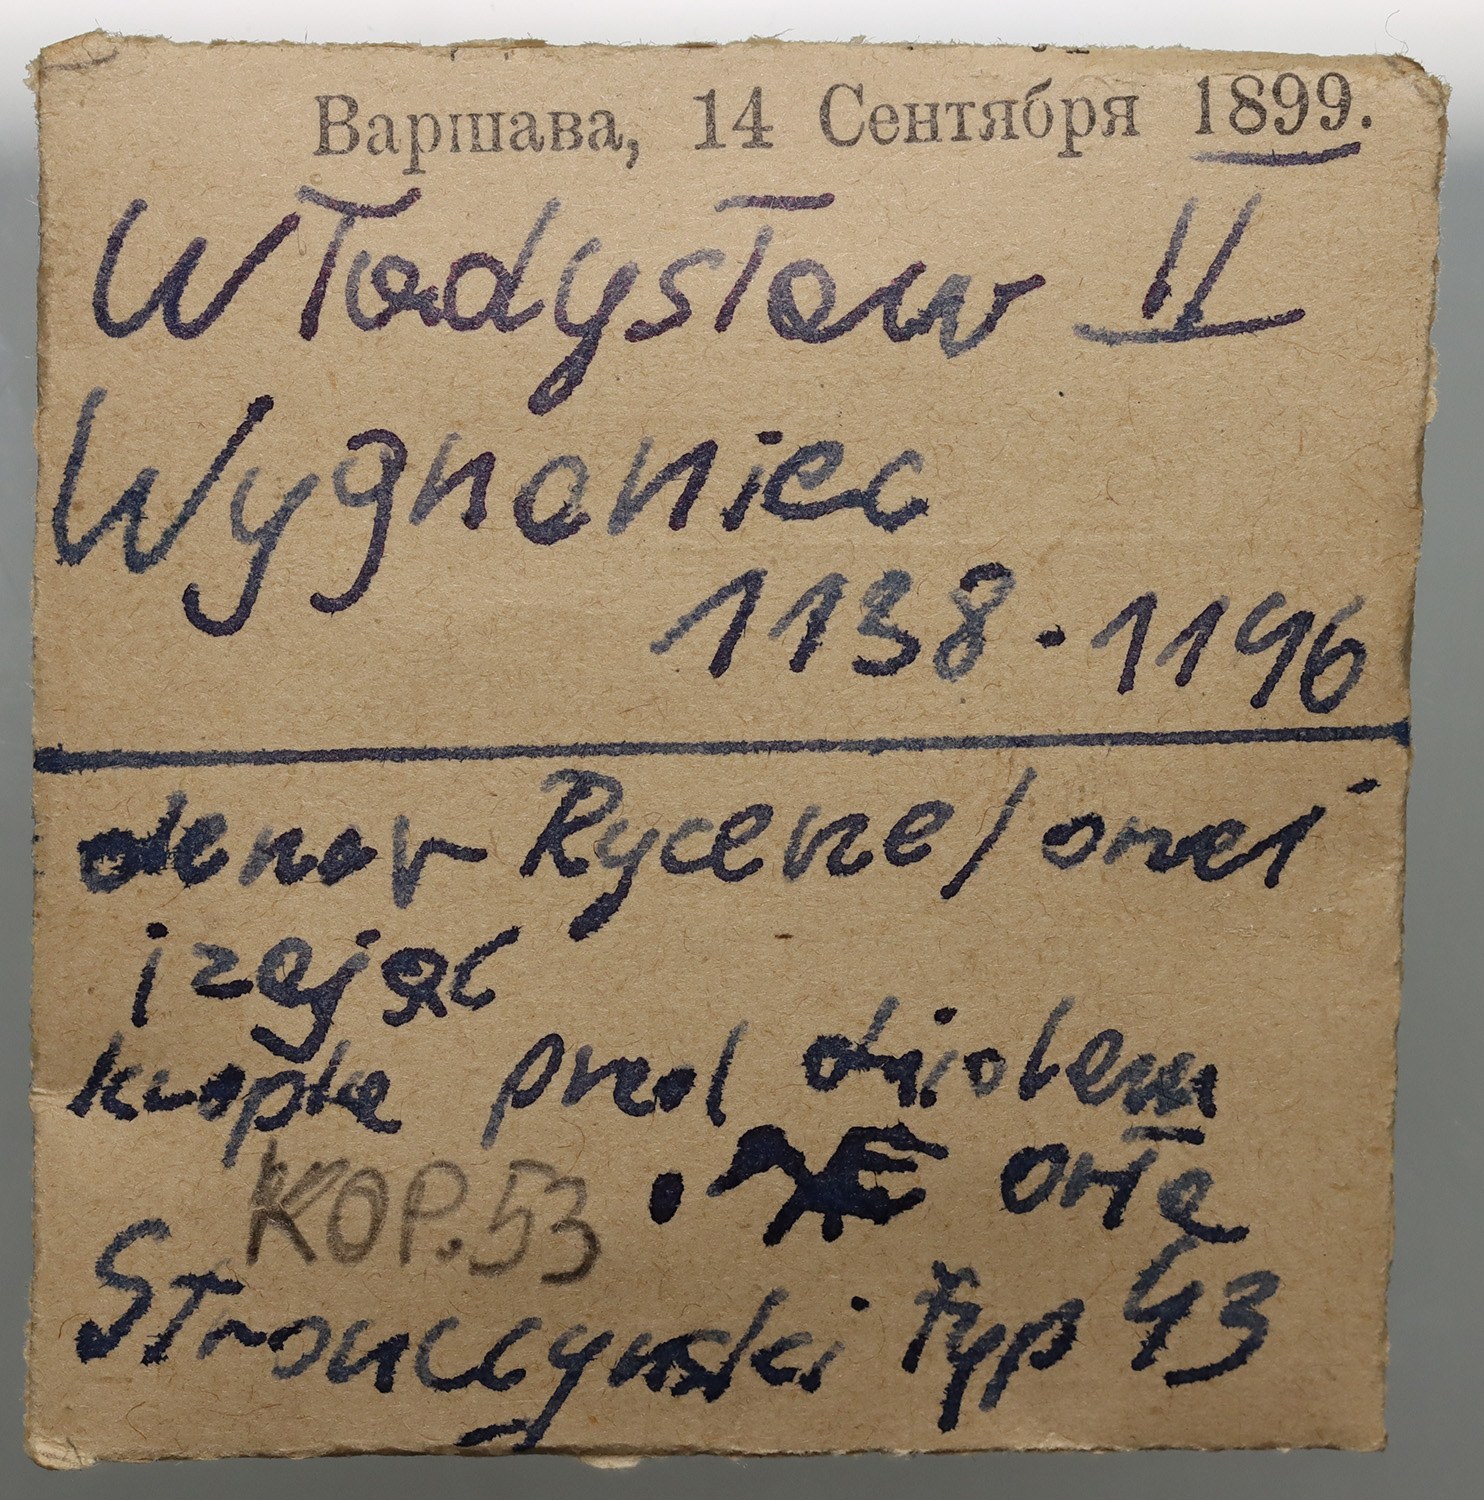 Варшава, 14 Сентября 1899.
Władysław II
Wygnaniec
1138 · 1146
denar Rycerze / orzeł
i zając
kropka przed dziobem
orła
KOP.53
Stronczyński typ 43